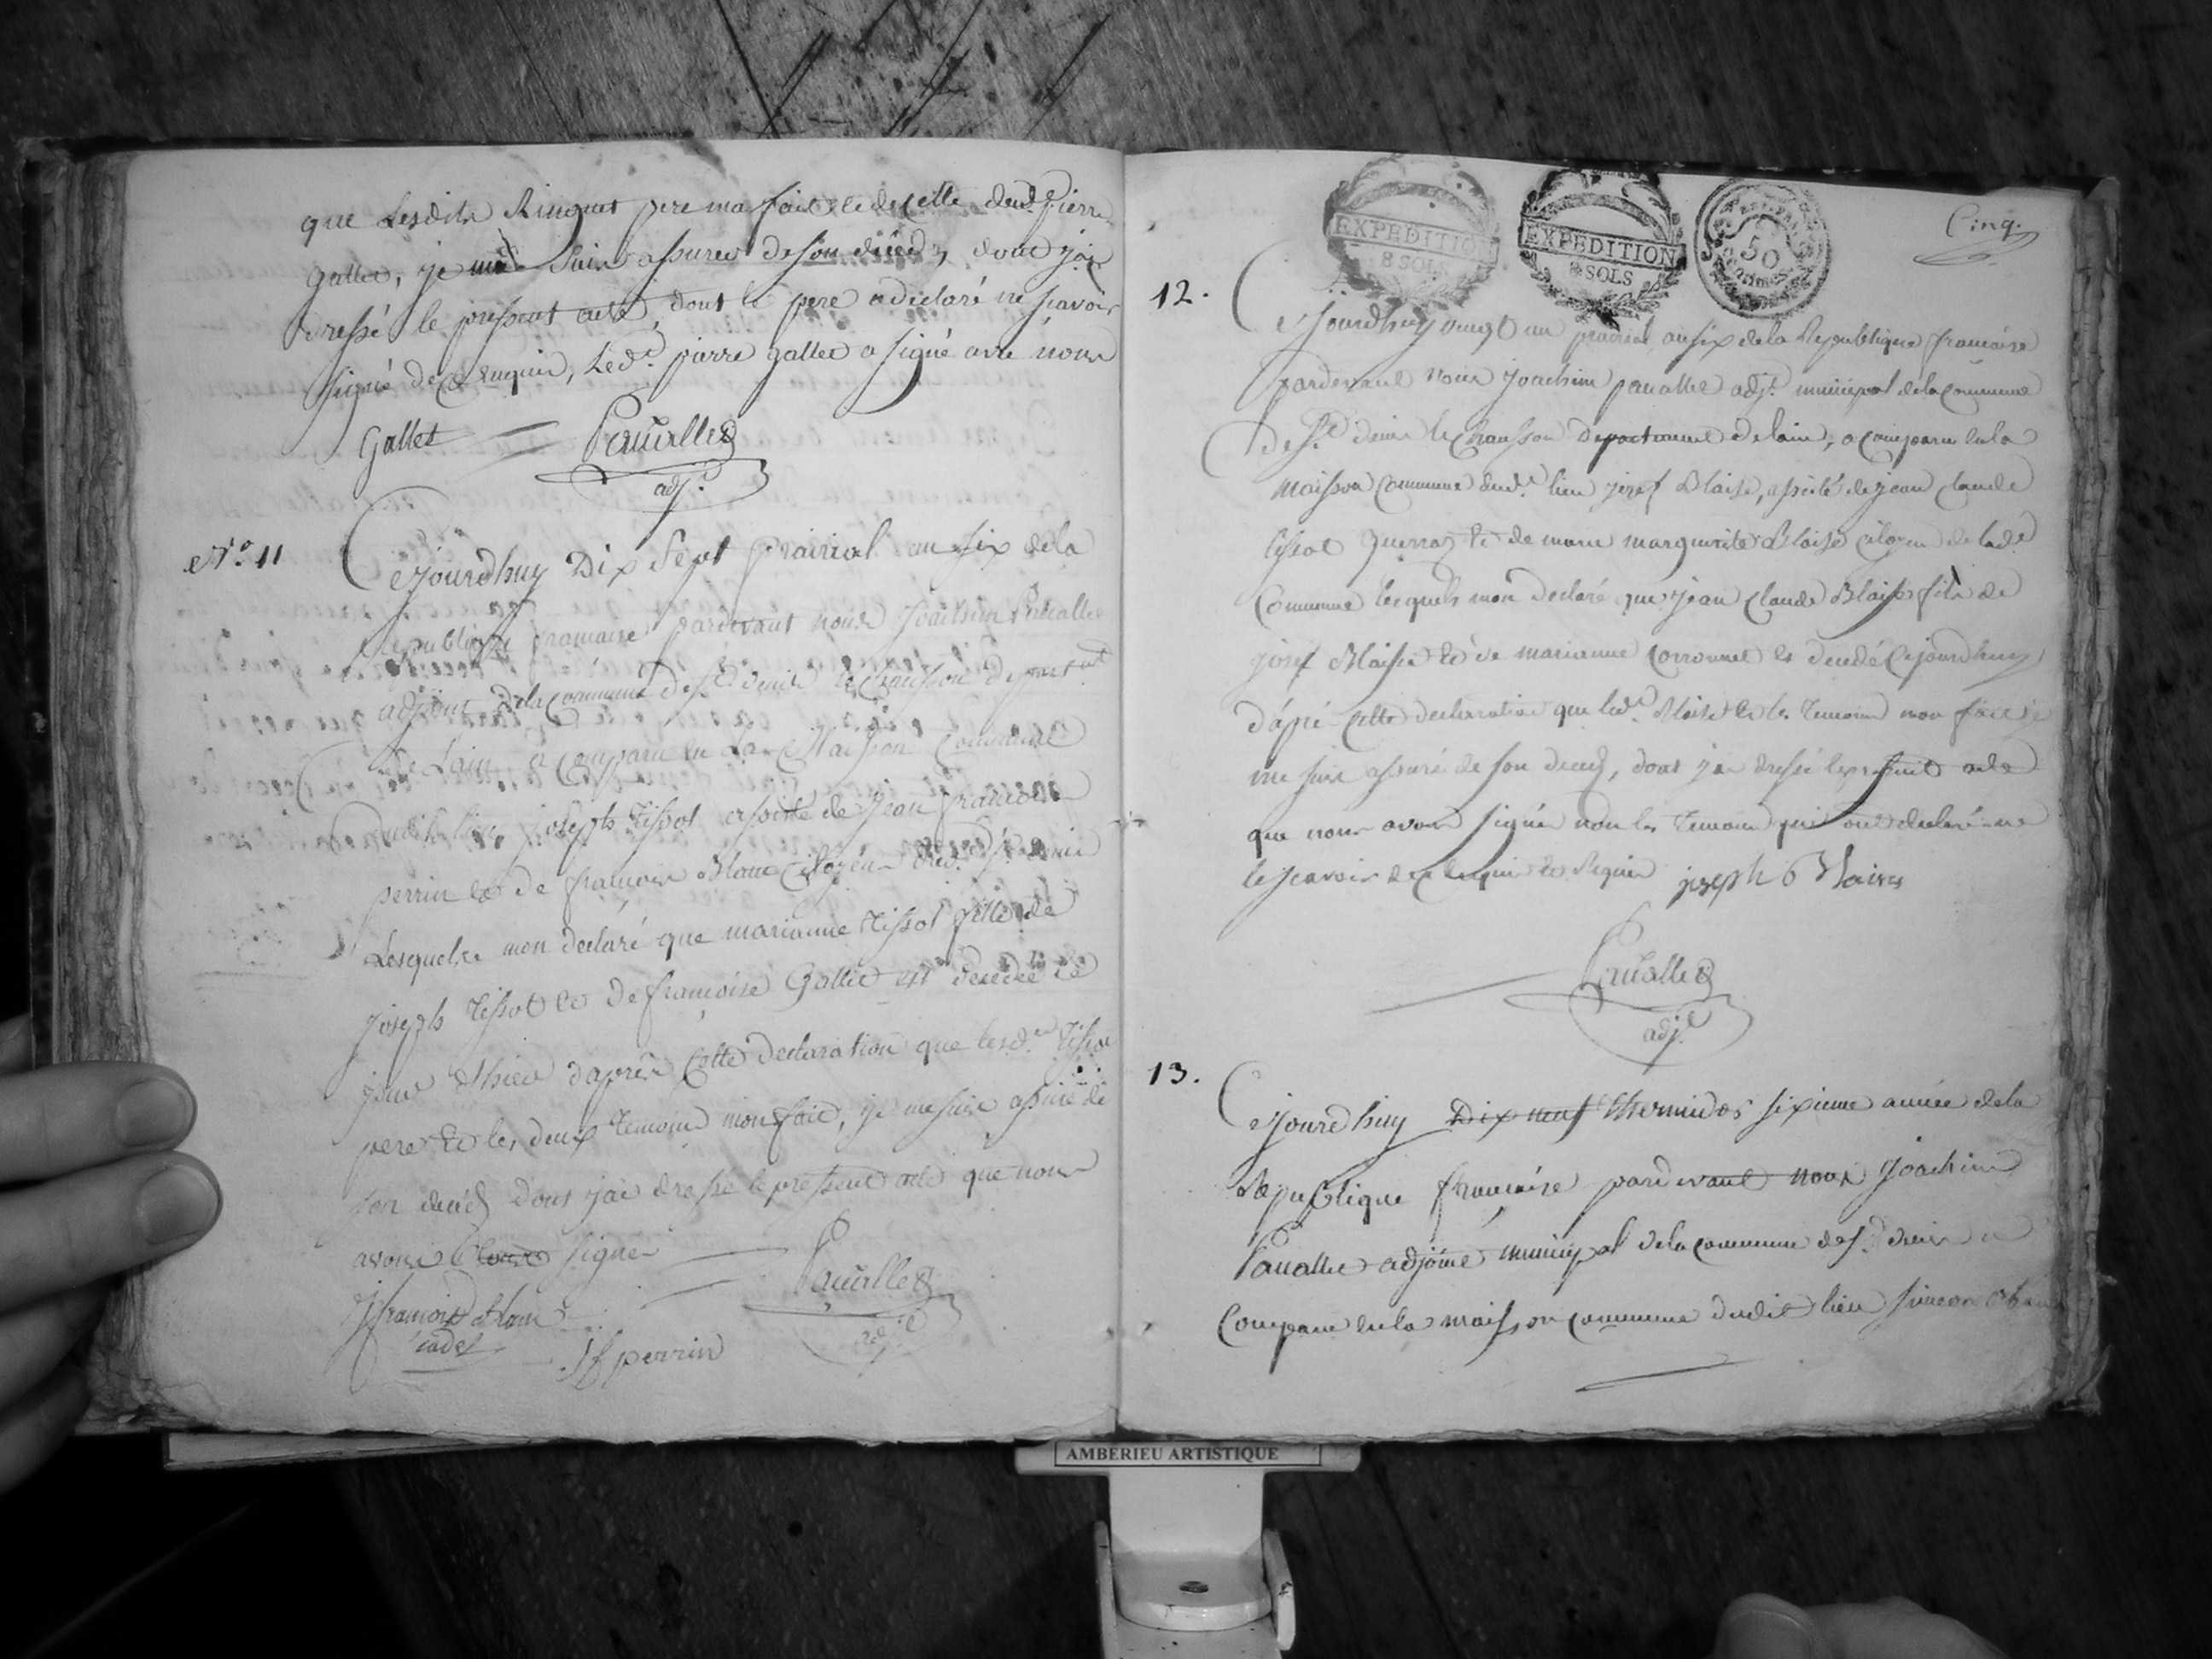 que Lesdits Ringuet pere ma fait et de celle dud. pierre
gallet, je me suis assurer de son déced, dont jai
dressé le present acte, dont le pere a déclaré ne scavoir
signé de ce enquis, Led. pierre gallet a signé avec nous
Gallet Pauallet
adj.
N.o 11 Cejourdhuy Dix Sept prairial an six de la
Republique francaise pardevant nous Joachim Pauallet
adjoint de la commune de St denis le Chausson depart.nt
de Lain a comparu en La Maison commune
dudit lieu joseph Tissot assisté de jean francois
perrin et de francois Blanc citoyens dud. St denis
Lesquels mon declaré que marianne Tissot fille de
joseph Tissot et de francoise Gallet est decedée le
jour d'hier daprès cette declaration que lesd. Tissot
pere et les deux temoins mon fait, je me suis assuré de
son decéd dont jai dressé le present acte que nous
avons signér
francois Blanc Pauallet
cadet adj.t
Jf perrin
EXPEDITION 8 SOLS
EXPEDITION 8 SOLS
50
Cinq.
12. Cejourdhuy vingt un prairial an six de la Republique francaise
pardevant nous joachim pauallet adj.t municipal de la commune
de St denis le chausson departement de lain, a comparu en la
maison commune dud. lieu josef Blaise, assisté de jean claude
tissot et de marie margueritte Blaise citoyens de lad.e
Commune lesquels mon declaré que jean claude Blaise fils de
josef Blaise et de marianne est decedé cejourdhuy
d'apré cette declaration que led. Blaise et les temoins mon fait je
me suis assuré de son deced, dont jai dressé le present acte
que nous avons signér non les temoins qui ont declaré ne
le scavoir de ce enquis et requis joseph Blaises
Pauallet
adj.t
13. Cejourdhuy Dix neuf thermidor sixieme année de la
Republique francaise pardevant nous Joachim
Pauallet adjoint municipal de la commune de St denis a
Comparu en la maison commune dudit lieu simeon
AMBERIEU ARTISTIQUE